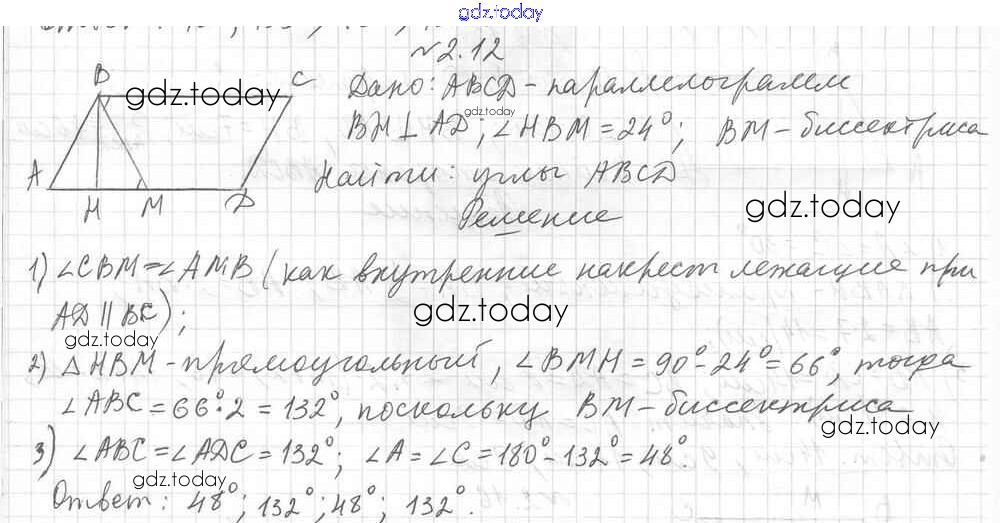 gdz.today
№2.12
B C
A H M D
Дано: ABCD - параллелограмм
BH ⊥ AD; ∠HBM = 24°; BM - биссектриса
Найти: углы ABCD
Решение
1) ∠CBM = ∠AMB (как внутренние накрест лежащие при
AD || BC);
2) △HBM - прямоугольный, ∠BMH = 90° - 24° = 66°, тогда
∠ABC = 66° · 2 = 132°, поскольку BM - биссектриса
3) ∠ABC = ∠ADC = 132°; ∠A = ∠C = 180° - 132° = 48°.
Ответ: 48°; 132°; 48°; 132°.
gdz.today
gdz.today
gdz.today
gdz.today
gdz.today
gdz.today
gdz.today